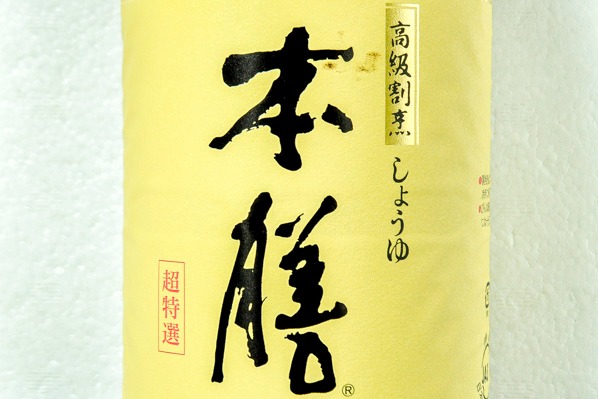 高級割烹
しょうゆ
本膳
®
超特選